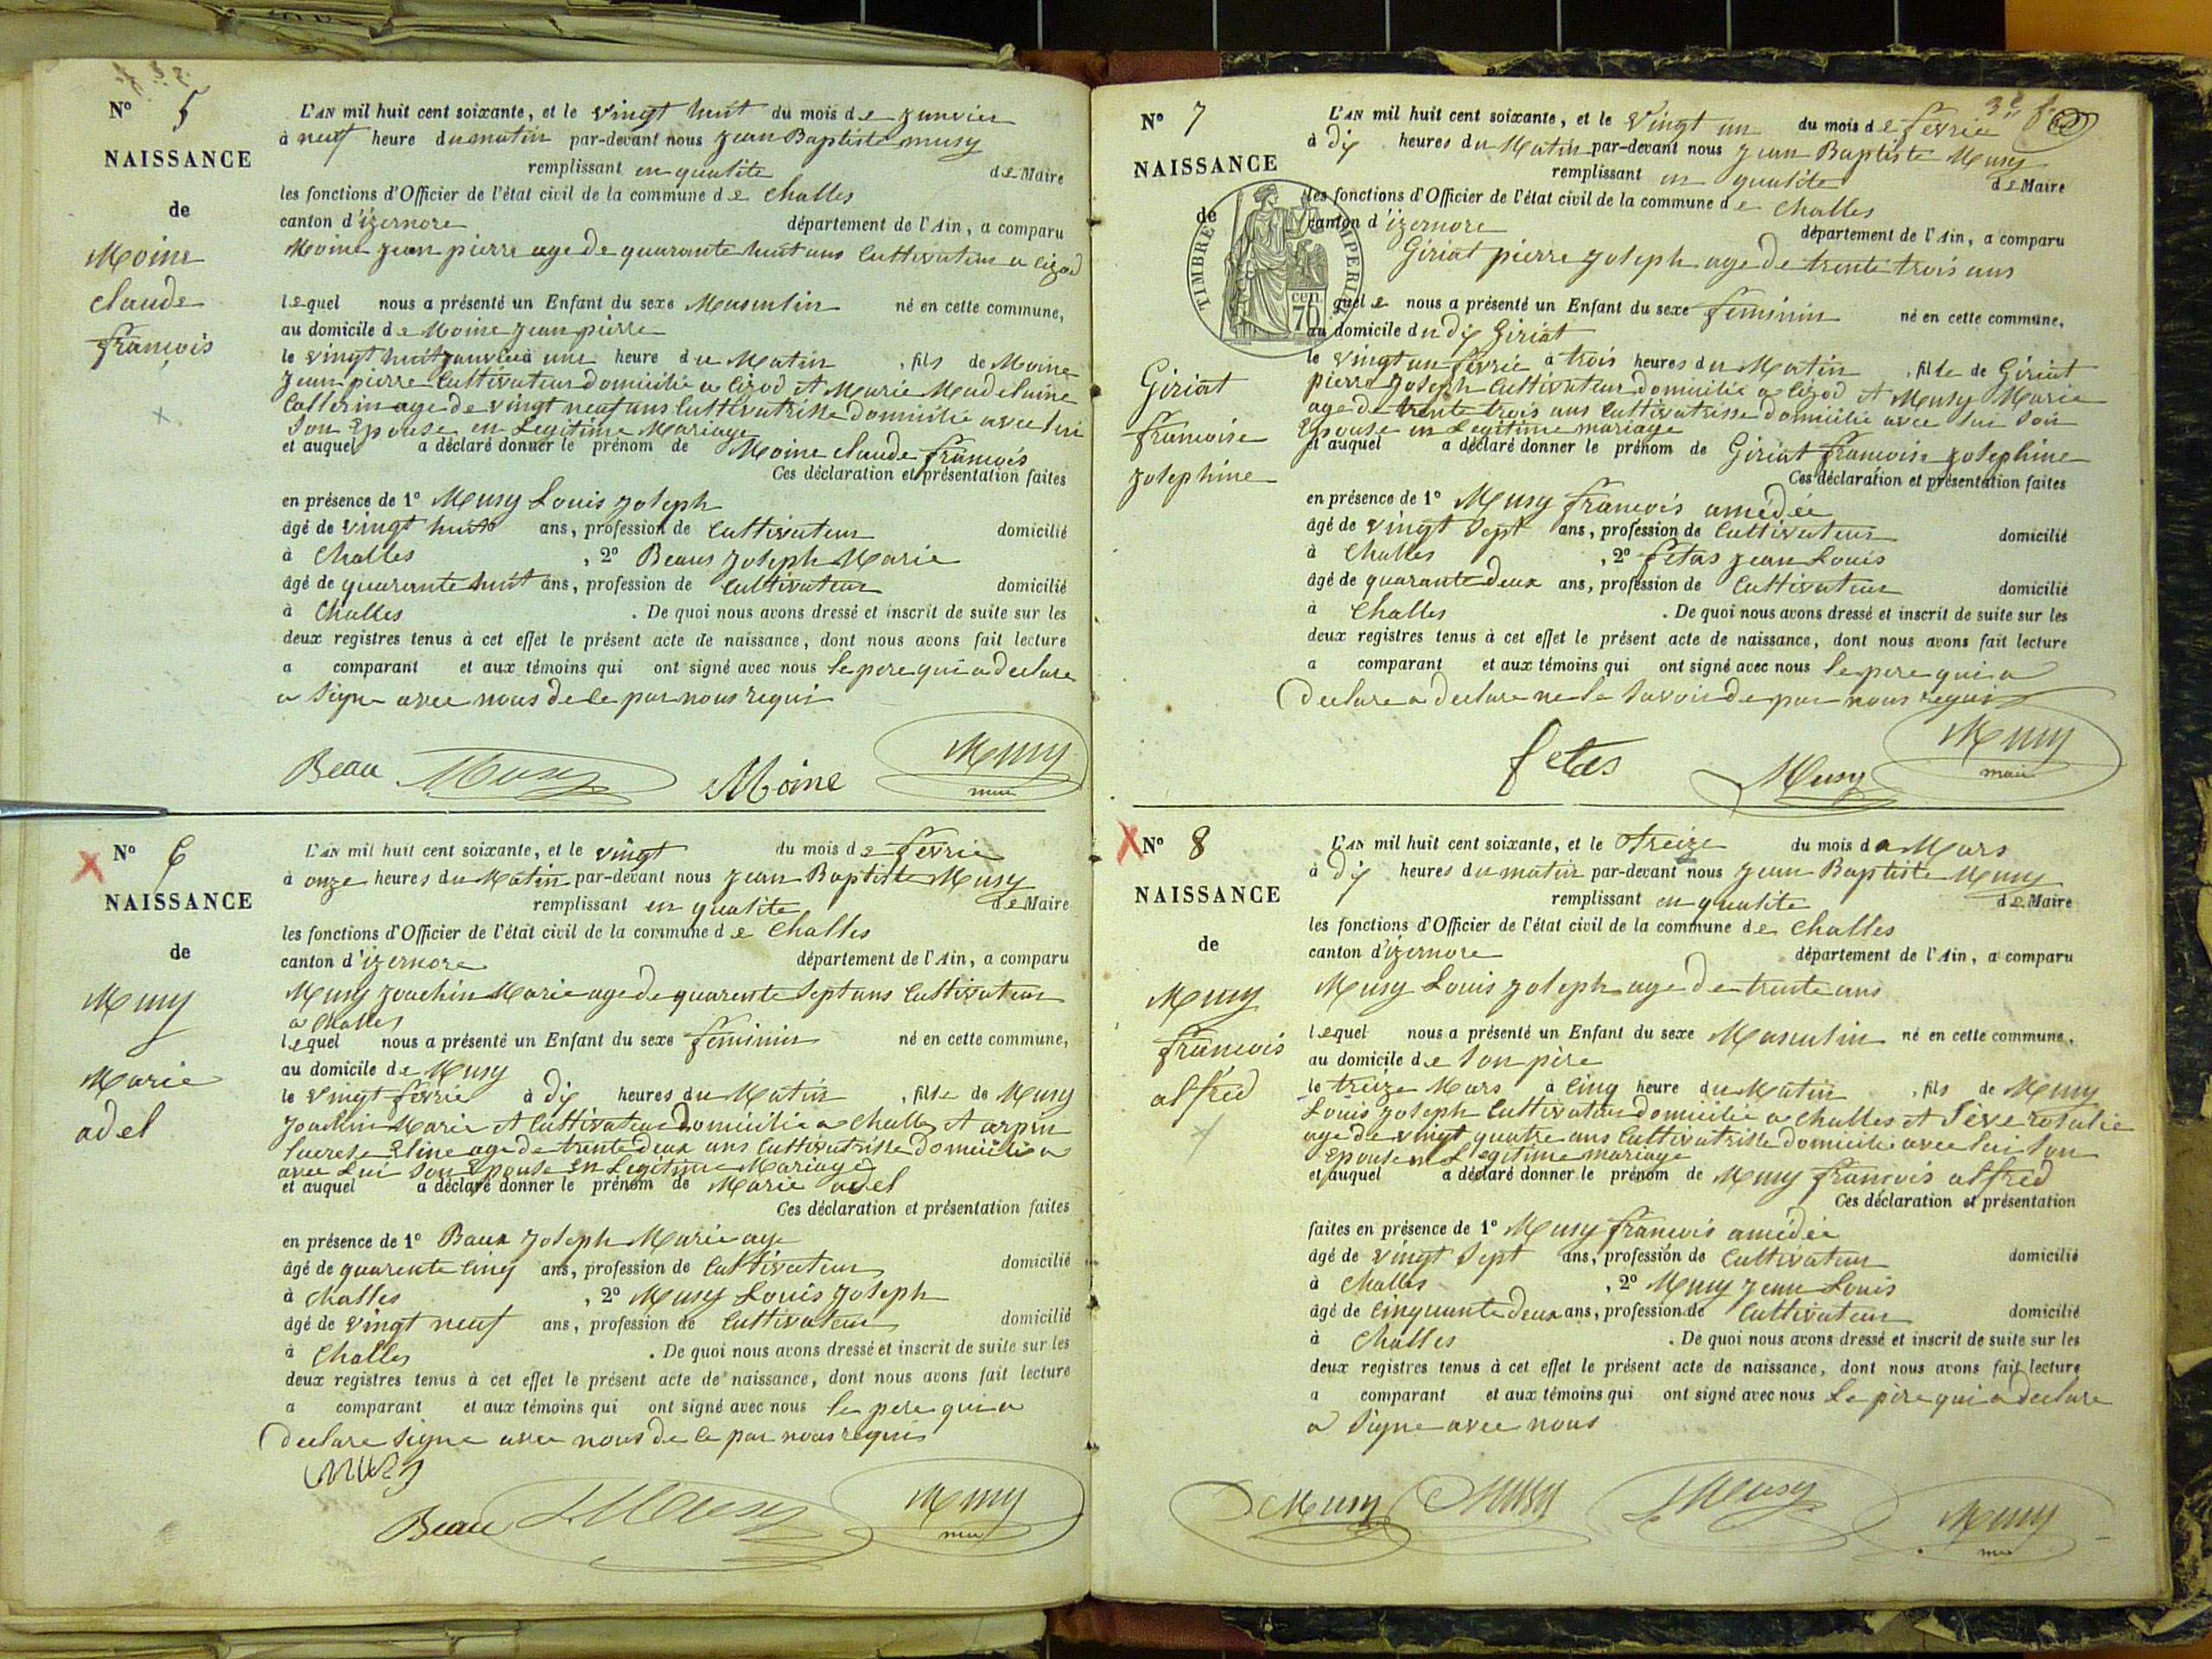 N° 5
NAISSANCE
de
Moine
claude
françois
L'AN mil huit cent soixante, et le vingt huit du mois de janvier
à neuf heure du matin par-devant nous jean Baptiste musy
remplissant en qualite de Maire
les fonctions d'Officier de l'état civil de la commune de Challes
canton d'izernore département de l'Ain, a comparu
Moine jean pierre age de quarante huit ans Cultivateur a Cizod
lequel nous a présenté un Enfant du sexe Masculin né en cette commune,
au domicile de Moine jean pierre
le vingt huit janvier à une heure du Matin, fils de Moine
jean pierre Cultivateur domicilie a Cizod et Marie Madelaine
age de vingt neuf ans Cultivatrisse domicilie avec lui
Son Epouse en Legitime Mariage
et auquel a déclaré donner le prénom de Moine claude francois
Ces déclaration et présentation faites
en présence de 1° Musy Louis joseph
âgé de vingt huit ans, profession de Cultivateur domicilié
à Challes, 2° Beau joseph Marie
âgé de quarante huit ans, profession de Cultivateur domicilié
à Challes. De quoi nous avons dressé et inscrit de suite sur les
deux registres tenus à cet effet le présent acte de naissance, dont nous avons fait lecture
a comparant et aux témoins qui ont signé avec nous le pere qui a declare
a signe avec nous de ce par nous requi
Beau Musy Moine Musy
N° 6
NAISSANCE
de
Musy
Marie
adel
L'AN mil huit cent soixante, et le vingt du mois de fevrie
à onze heures du Matin par-devant nous jean Baptiste Musy
remplissant en qualite de Maire
les fonctions d'Officier de l'état civil de la commune de Challes
canton d'izernore département de l'Ain, a comparu
Musy joachin Marie age de quarente Sept ans Cultivateur
a Challes
lequel nous a présenté un Enfant du sexe feminin né en cette commune,
au domicile de Musy
le vingt fevrie à dix heures du Matin, fille de Musy
joachin Marie et Cultivateur Domicilie a Challes et arpin
Lucrese Eline age de trente deux ans Cultivatrisse domicilie a
avec Lui Son Epouse en Legitime Mariage
et auquel a déclaré donner le prénom de Marie adel
Ces déclaration et présentation faites
en présence de 1° Baux joseph Marie age
âgé de quarente cinq ans, profession de Cultivateur domicilié
à Challes, 2° Musy Louis joseph
âgé de vingt neuf ans, profession de Cultivateur domicilié
à Challes. De quoi nous avons dressé et inscrit de suite sur les
deux registres tenus à cet effet le présent acte de naissance, dont nous avons fait lecture
a comparant et aux témoins qui ont signé avec nous le pere qui a
declare signe avec nous de ce par nous requis
Musy
Beau Musy Musy
N° 7
NAISSANCE
de
TIMBRE IMPERIAL
cen 70
Giriat
francoise
josephine
L'AN mil huit cent soixante, et le vingt un du mois de fevrie
à dix heures du Matin par-devant nous jean Baptiste Musy
remplissant en qualite de Maire
les fonctions d'Officier de l'état civil de la commune de Challes
canton d'izernore département de l'Ain, a comparu
Giriat pierre joseph age de trente trois ans
quel e nous a présenté un Enfant du sexe feminin né en cette commune,
au domicile du dis Giriat
le vingt un fevrie à trois heures du Matin, fille de Giriat
pierre joseph Cultivateur domicilie a Cizod et Musy Marie
age de trente trois ans Cultivatrisse domicilie avec lui Son
Epouse en Legitime mariage
et auquel a déclaré donner le prénom de Giriat francoise josephine
Ces déclaration et présentation faites
en présence de 1° Musy francois amédée
âgé de vingt sept ans, profession de Cultivateur domicilié
à Challes, 2° fetas jean Louis
âgé de quarante deux ans, profession de Cultivateur domicilié
à Challes. De quoi nous avons dressé et inscrit de suite sur les
deux registres tenus à cet effet le présent acte de naissance, dont nous avons fait lecture
a comparant et aux témoins qui ont signé avec nous le pere qui a
declare a declare ne le savoir de par nous requis
fetas Musy Musy
maire
N° 8
NAISSANCE
de
Musy
francois
alfred
L'AN mil huit cent soixante, et le treize du mois de Mars
à dix heures du matin par-devant nous jean Baptiste Musy
remplissant en qualite de Maire
les fonctions d'Officier de l'état civil de la commune de Challes
canton d'izernore département de l'Ain, a comparu
Musy Louis joseph age de trente ans
lequel nous a présenté un Enfant du sexe Masculin né en cette commune,
au domicile de Son père
le treize Mars à cinq heure du Matin, fils de Musy
Louis joseph Cultivateur domicilie a Challes et Seve rosalie
age de vingt quatre ans Cultivatrisse domicilie avec lui Son
Epouse en Legitime mariage
et auquel a déclaré donner le prénom de Musy francois alfred
Ces déclaration et présentation
faites en présence de 1° Musy francois amédée
âgé de vingt sept ans, profession de Cultivateur domicilié
à Challes, 2° Musy jean Louis
âgé de cinquante deux ans, profession de Cultivateur domicilié
à Challes. De quoi nous avons dressé et inscrit de suite sur les
deux registres tenus à cet effet le présent acte de naissance, dont nous avons fait lecture
a comparant et aux témoins qui ont signé avec nous Le père qui a declare
a signe avec nous
Musy Musy Musy Musy